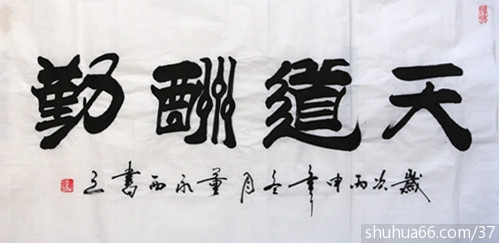 天道酬勤
歲次丙申年冬月董永西書之
shuhua66.com/37